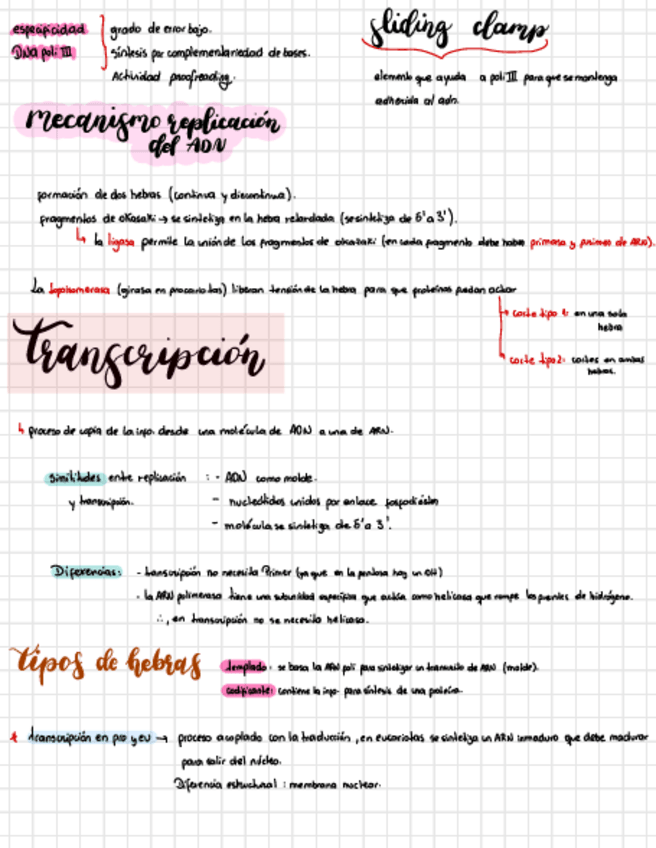 especificidad
DNA poli III
grado de error bajo.
síntesis por complementariedad de bases.
Actividad proofreading.
sliding clamp
elemento que ayuda a poli III para que se mantenga
adherida al adn.
mecanismo replicación
del ADN
formación de dos hebras (continua y discontinua).
fragmentos de okasaki → se sintetiza en la hebra retardada (se sintetiza de 5' a 3').
↳ la ligasa permite la unión de los fragmentos de okazaki (en cada fragmento debe haber primasa y primer de ARN).
La (girasa en procariotas) liberan tensión de la hebra para que proteínas puedan actuar
→ corte tipo 1: en una sola
hebra
→ corte tipo 2: cortes en ambas
hebras.
Transcripción
↳ proceso de copia de la info. desde una molécula de ADN a una de ARN.
similitudes entre replicación
y transcripción.
: - ADN como molde.
- nucleótidos unidos por enlace fosfodiéster
- molécula se sintetiza de 5' a 3'.
Diferencias: - transcripción no necesita Primer (ya que en la pentosa hay un OH)
- la ARN polimerasa tiene una subunidad específica que actúa como helicasa que rompe los puentes de hidrógeno.
∴, en transcripción no se necesita helicasa.
tipos de hebras
templado: se basa la ARN poli para sintetizar un transcrito de ARN (molde).
codificante: contiene la info. para síntesis de una proteína.
* transcripción en pro y eu → proceso acoplado con la traducción, en eucariotas se sintetiza un ARN inmaduro que debe madurar
para salir del núcleo.
Diferencia estructural : membrana nuclear.